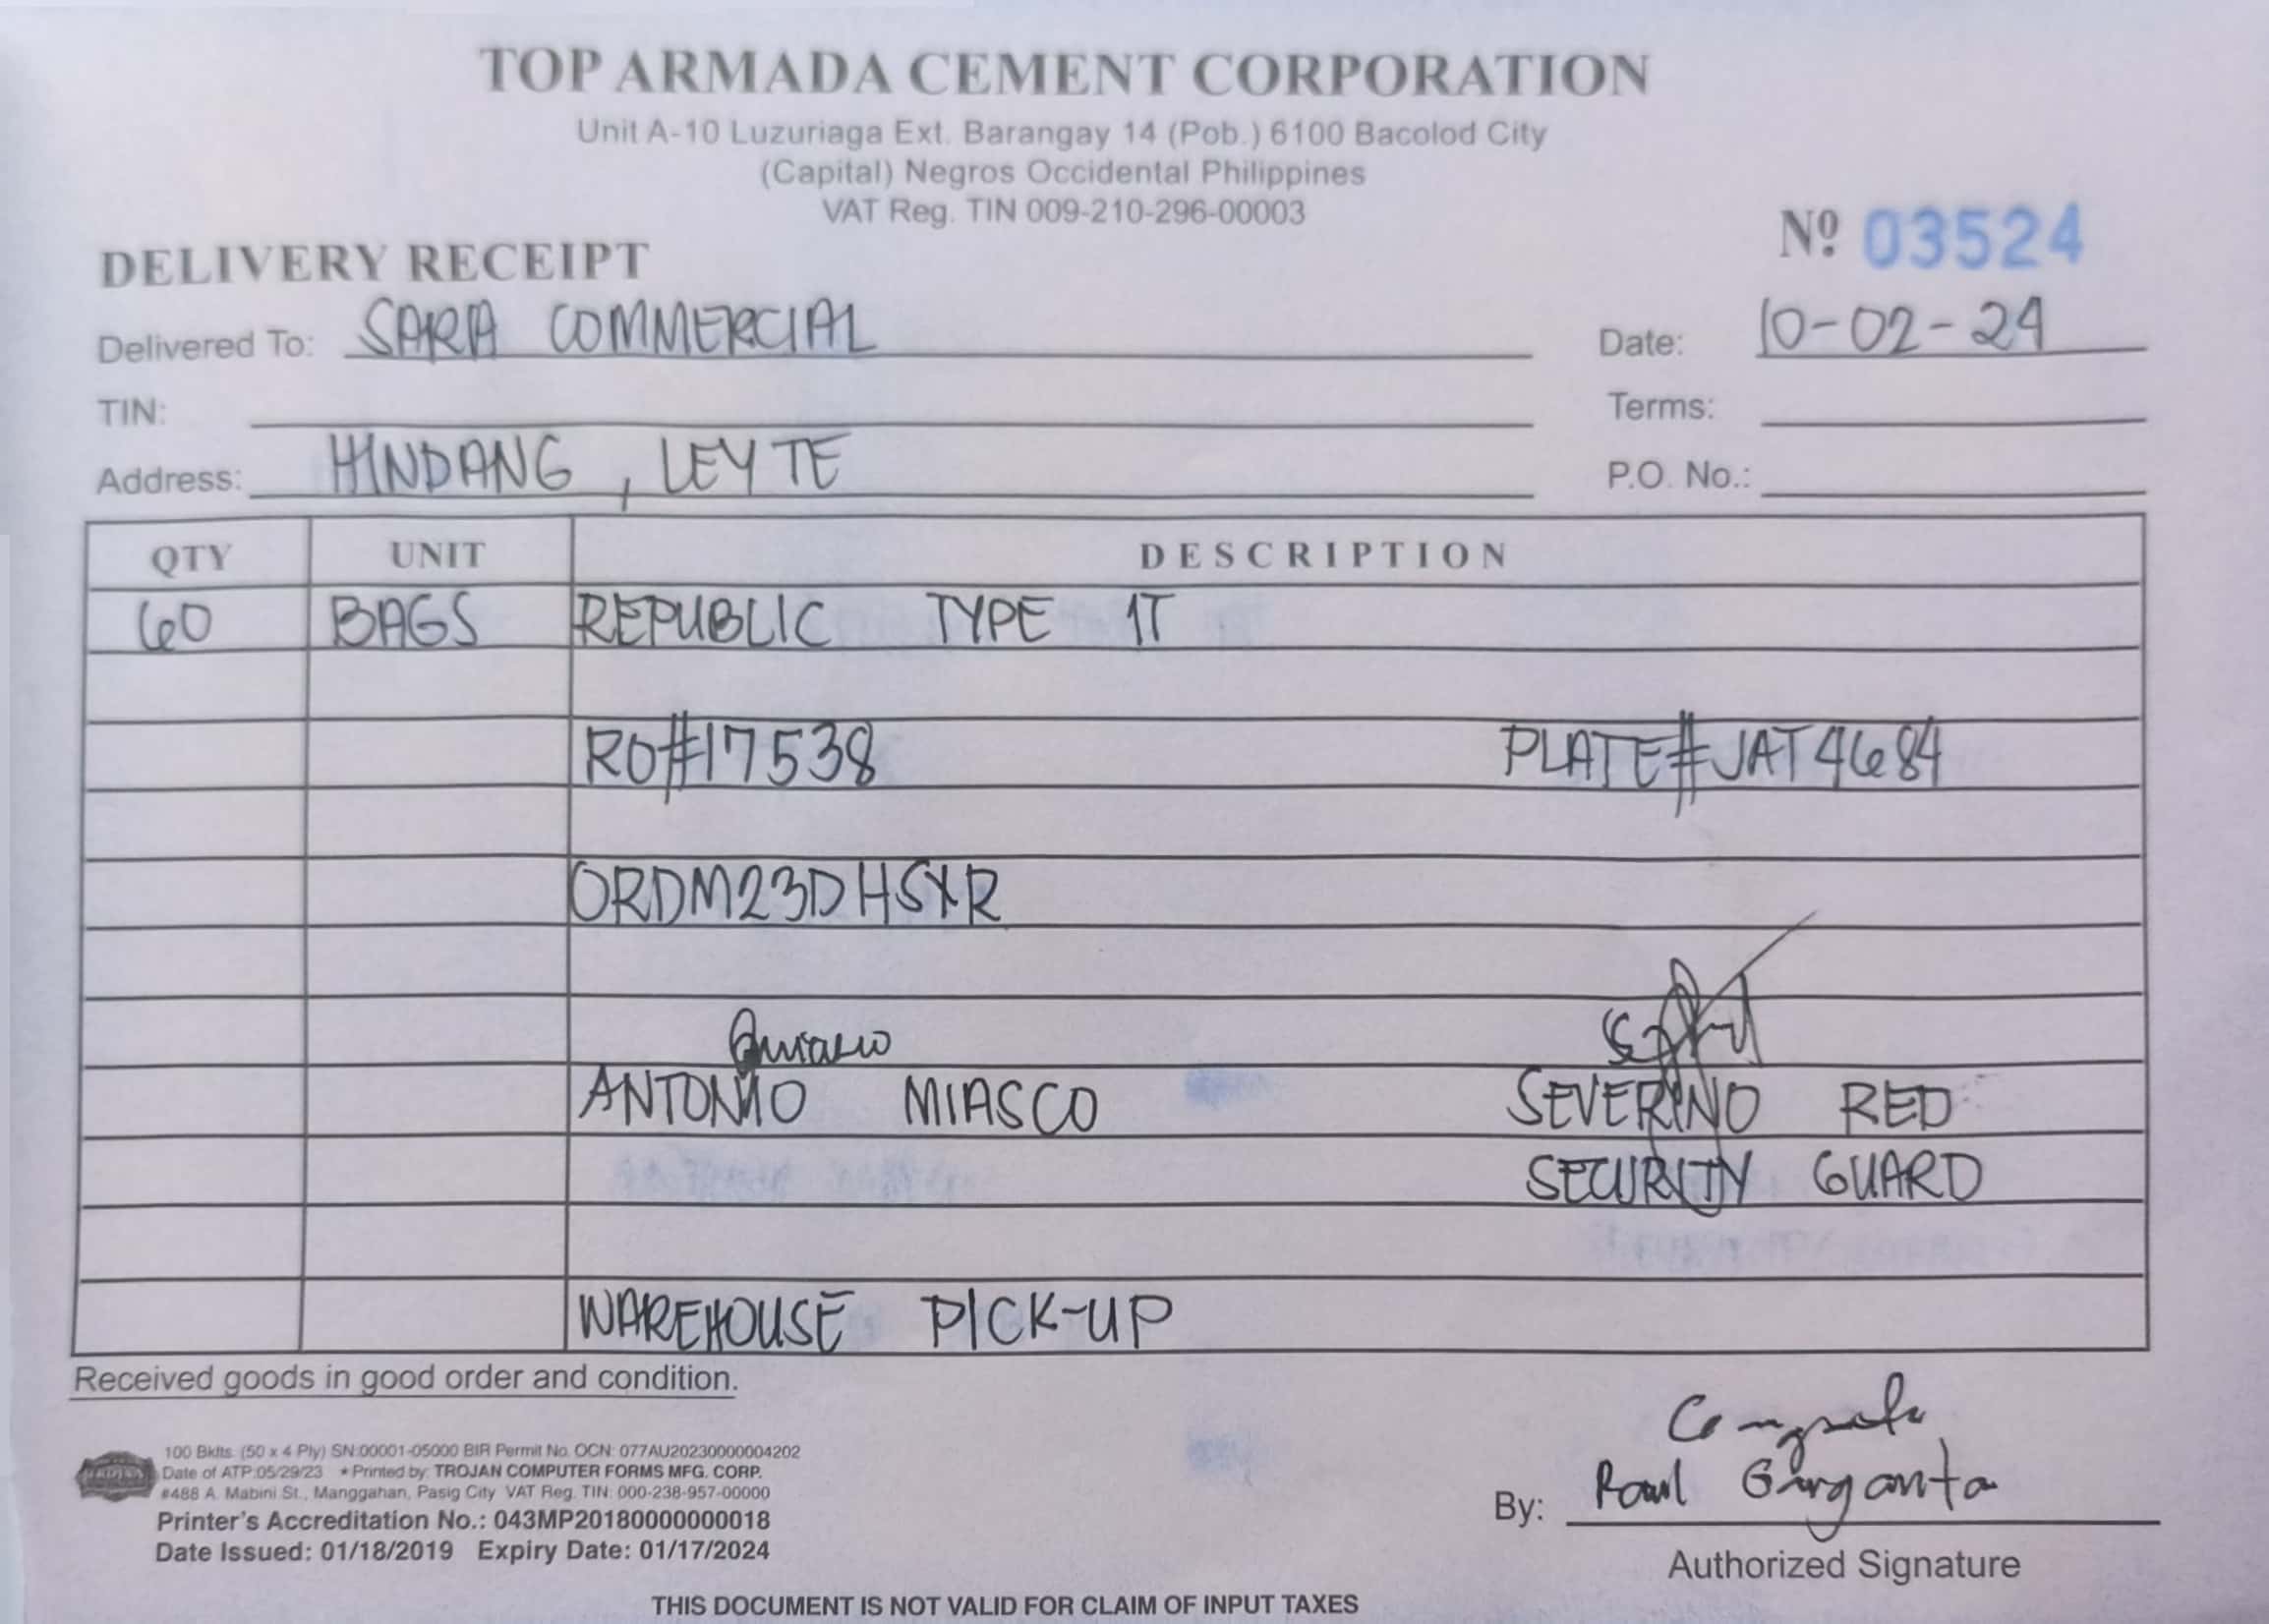 TOP ARMADA CEMENT CORPORATION
Unit A-10 Luzuriaga Ext. Barangay 14 (Pob.) 6100 Bacolod City
(Capital) Negros Occidental Philippines
VAT Reg. TIN 009-210-296-00003
Nº 03524
DELIVERY RECEIPT
Delivered To: SARA COMMERCIAL Date: 10-02-24
TIN: Terms:
Address: HINDANG, LEYTE P.O. No.:
QTY UNIT DESCRIPTION
60 BAGS REPUBLIC TYPE 1T
RO#17538 PLATE#JAT4684
ORDM23DHSXR
ANTONIO MIASCO SEVERINO RED
SECURITY GUARD
WAREHOUSE PICK-UP
Received goods in good order and condition.
100 Bklts. (50 x 4 Ply) SN:00001-05000 BIR Permit No. OCN: 077AU20230000004202
Date of ATP:05/29/23 * Printed by: TROJAN COMPUTER FORMS MFG. CORP.
#488 A. Mabini St., Manggahan, Pasig City VAT Reg. TIN: 000-238-957-00000
Printer's Accreditation No.: 043MP20180000000018
Date Issued: 01/18/2019 Expiry Date: 01/17/2024
By: Raul Garganta
Authorized Signature
THIS DOCUMENT IS NOT VALID FOR CLAIM OF INPUT TAXES